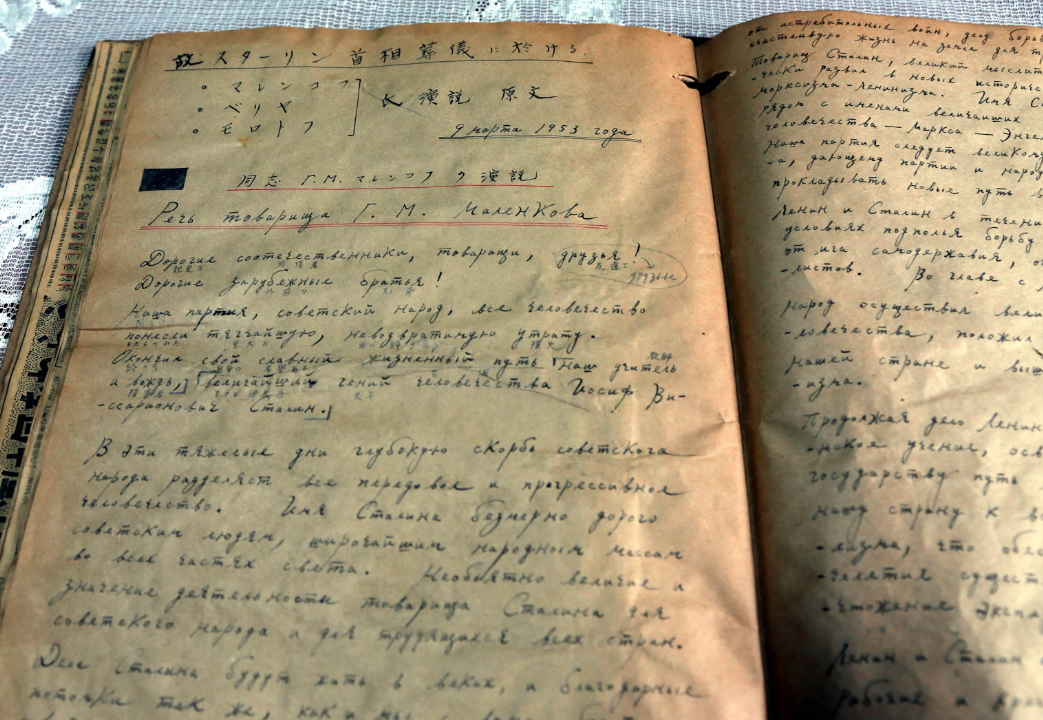 故スターリン首相葬儀に於ける
。マレンコフ
。ベリヤ
。モロトフ
氏演説原文
9 марта 1953 года
同志 Г.М. マレンコフノ演説
Речь товарища Г. М. Маленкова
Дорогие соотечественники, товарищи, друзья!
друзья
Дорогие зарубежные братья!
Наша партия, советский народ, все человечество
понесли тягчайшую, невозвратимую утрату.
Окончил свой славный жизненный путь наш учитель
и вождь, величайший гений человечества Иосиф Ви-
-ссарионович Сталин.
В эти тяжелые дни глубокую скорбь советского
народа разделяет все передовое и прогрессивное
человечество. Имя Сталина безмерно дорого
советским людям, широчайшим народным массам
во всех частях света. Необъятно величие и
значение деятельности товарища Сталина для
советского народа и для трудящихся всех стран.
Дела Сталина будут жить в веках, и благодарные
потомки так же, как и мы с вами, будут
от истребительных войн, дело борьбы
счастливую жизнь на земле для
Товарищ Сталин, великий мыслит
-чески развил в новых историчес
марксизма-ленинизма. Имя С
рядом с именами величайших
человечества — Маркса — Энге
Наша партия следует великому
-а, дающему партии и народ
прокладывать новые путь в
Ленин и Сталин в течени
условиях подполья борьбу
от ига самодержавия, о
-листов. Во главе с
народ осуществил вели
-ловечества, положил
нашей стране и выш
-изма.
Продолжая дело Ленин
-нское учение, осв
государству путь
нашу страну к в
-лизма, что обес
-челетия сущест
-чтожение экспл
Ленин и Сталин
рабочие и кре